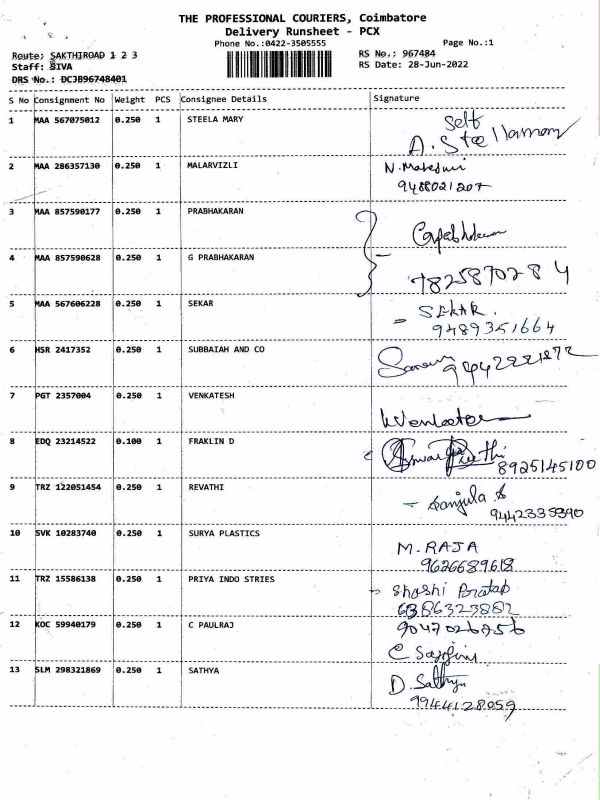 THE PROFESSIONAL COURIERS, Coimbatore
Delivery Runsheet - PCX
Phone No.:0422-3505555
Page No.:1
Route: SAKTHIROAD 1 2 3
RS No.: 967484
Staff: SIVA
RS Date: 28-Jun-2022
DRS No.: DCJB96748401
S No Consignment No Weight PCS Consignee Details Signature
1 MAA 567075012 0.250 1 STEELA MARY self
2 MAA 286357130 0.250 1 MALARVIZLI
9488021207
3 MAA 857590177 0.250 1 PRABHAKARAN
4 MAA 857590628 0.250 1 G PRABHAKARAN
7825870284
5 MAA 567606228 0.250 1 SEKAR SEKAR.
9489351664
6 HSR 2417352 0.250 1 SUBBAIAH AND CO
7 PGT 2357004 0.250 1 VENKATESH
8 EDQ 23214522 0.100 1 FRAKLIN D
8925145100
9 TRZ 122051454 0.250 1 REVATHI Sanjula.S
9442335390
10 SVK 10283740 0.250 1 SURYA PLASTICS
M. RAJA
9626689618
11 TRZ 15586138 0.250 1 PRIYA INDO STRIES Shashi Pratap
6386323882
12 KOC 59940179 0.250 1 C PAULRAJ
13 SLM 298321869 0.250 1 SATHYA D. Sathya
9944128059